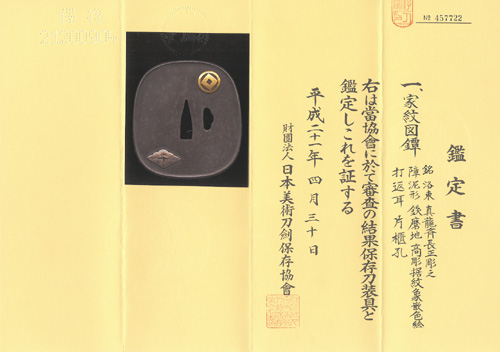 № 457722
鑑定書
一、家紋図鐔
銘 洛東 真龍斉長正彫之
障泥形 鉄磨地 高彫据紋象嵌色絵
打返耳 片櫃孔
右は當協會に於て審査の結果保存刀装具と
鑑定しこれを証する
平成二十一年 四月三十日
財團法人 日本美術刀劍保存協會